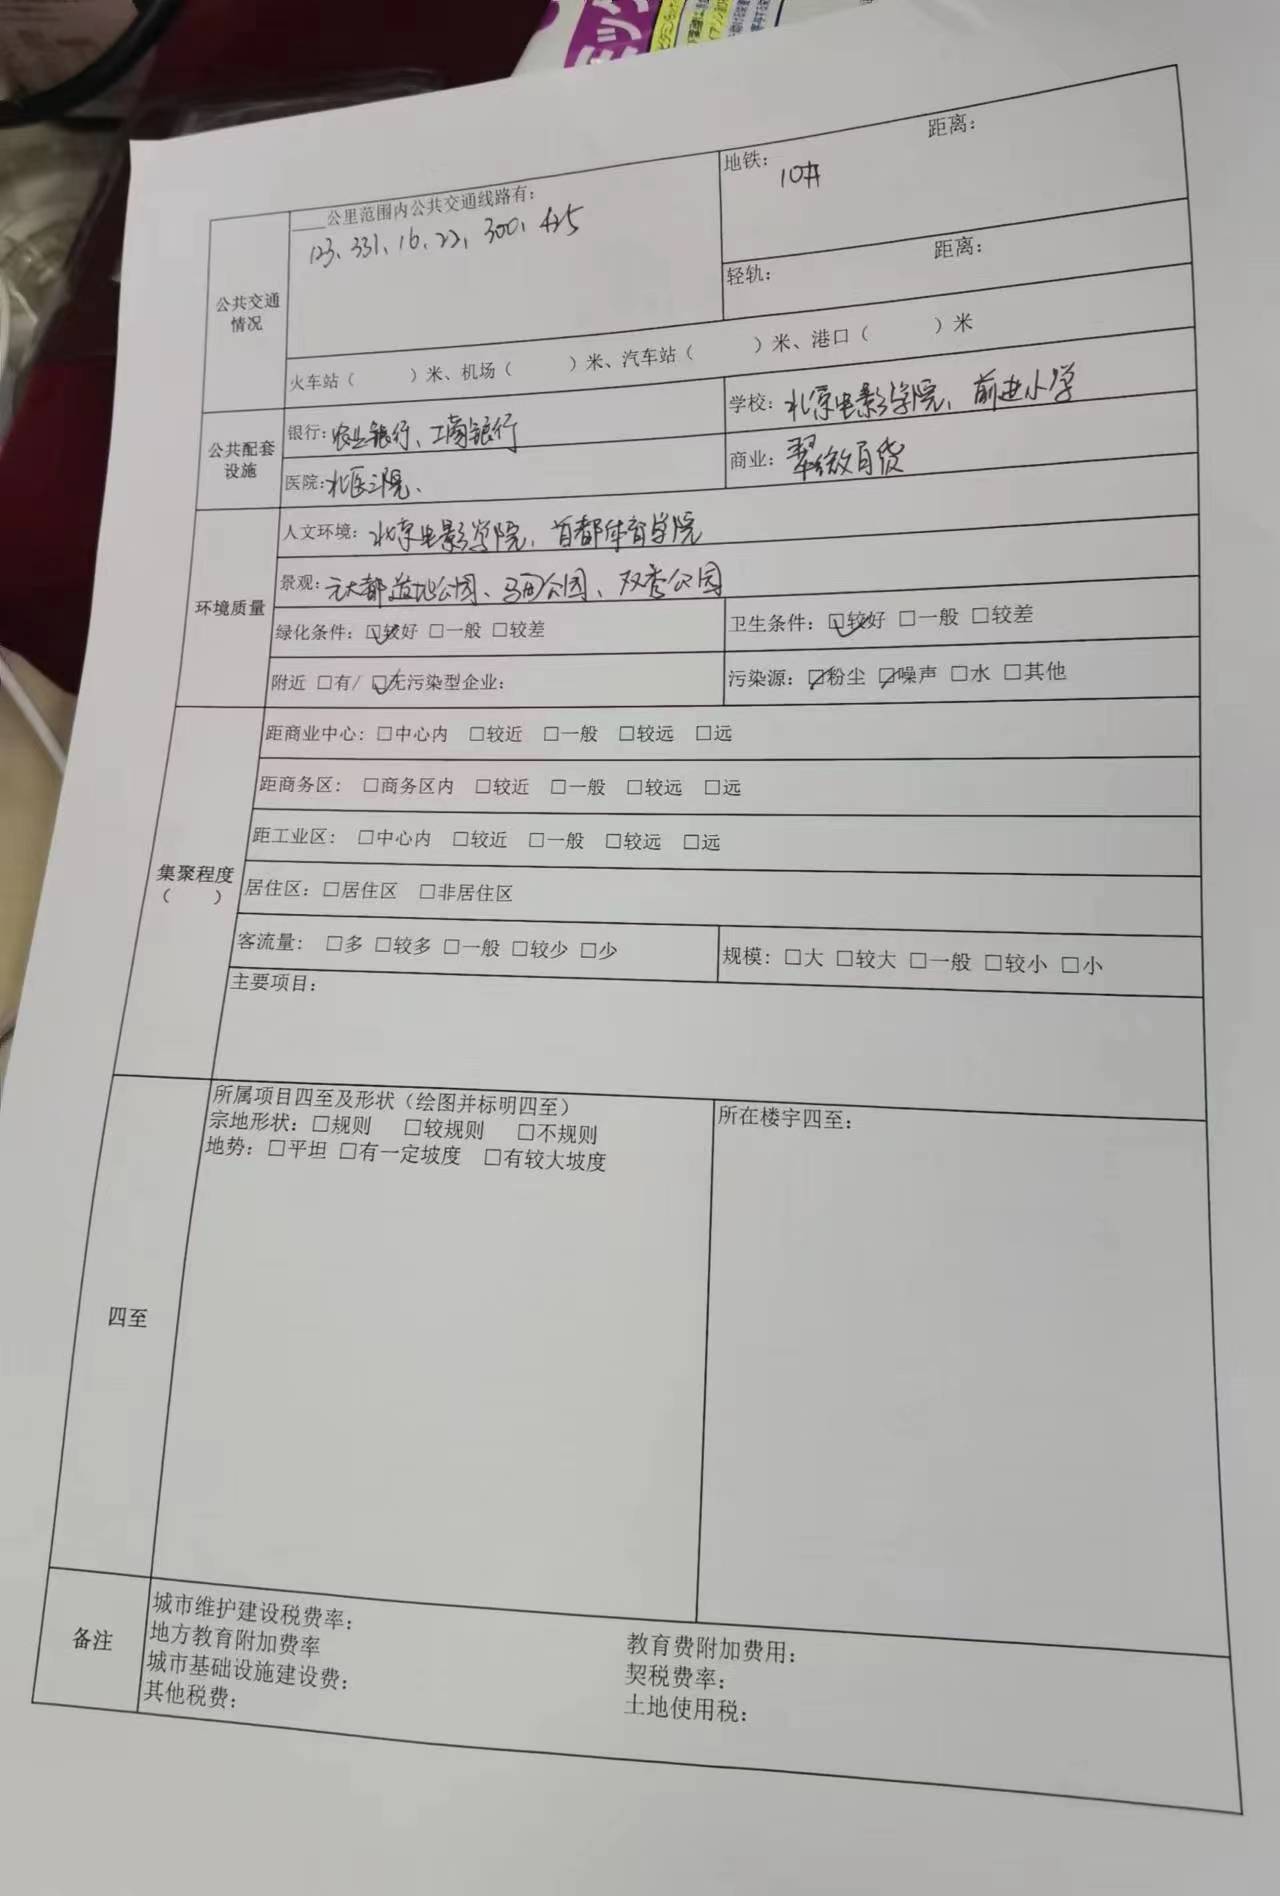 ____公里范围内公共交通线路有：
123、331、16、22、300、425
地铁： 10# 距离：
轻轨： 距离：
公共交通情况
火车站（ ）米、机场（ ）米、汽车站（ ）米、港口（ ）米
公共配套设施
银行：农业银行、工商银行
学校：北京电影学院、前进小学
医院：北医三院、
商业：翠微百货
环境质量
人文环境：北京电影学院、首都体育学院
景观：元大都遗址公园、马甸公园、双秀公园
绿化条件：☑较好 □一般 □较差
卫生条件：☑较好 □一般 □较差
附近 □有/ ☑无污染型企业：
污染源：☑粉尘 ☑噪声 □水 □其他
集聚程度
（ ）
距商业中心：□中心内 □较近 □一般 □较远 □远
距商务区： □商务区内 □较近 □一般 □较远 □远
距工业区： □中心内 □较近 □一般 □较远 □远
居住区：□居住区 □非居住区
客流量： □多 □较多 □一般 □较少 □少
规模：□大 □较大 □一般 □较小 □小
主要项目：
四至
所属项目四至及形状（绘图并标明四至）
宗地形状：□规则 □较规则 □不规则
地势：□平坦 □有一定坡度 □有较大坡度
所在楼宇四至：
备注
城市维护建设税费率：
地方教育附加费率 教育费附加费用：
城市基础设施建设费： 契税费率：
其他税费： 土地使用税：